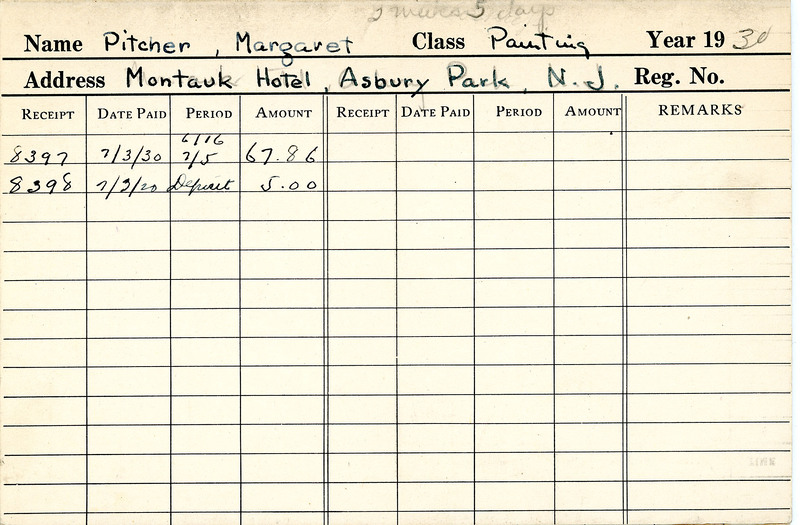 2 weeks 5 days
Name Pitcher, Margaret Class Painting Year 19 30
Address Montauk Hotel, Asbury Park, N. J. Reg. No.
RECEIPT DATE PAID PERIOD AMOUNT RECEIPT DATE PAID PERIOD AMOUNT REMARKS
6/16
8397 7/3/30 7/5 67.86
8398 7/3/30 Deposit 5.00